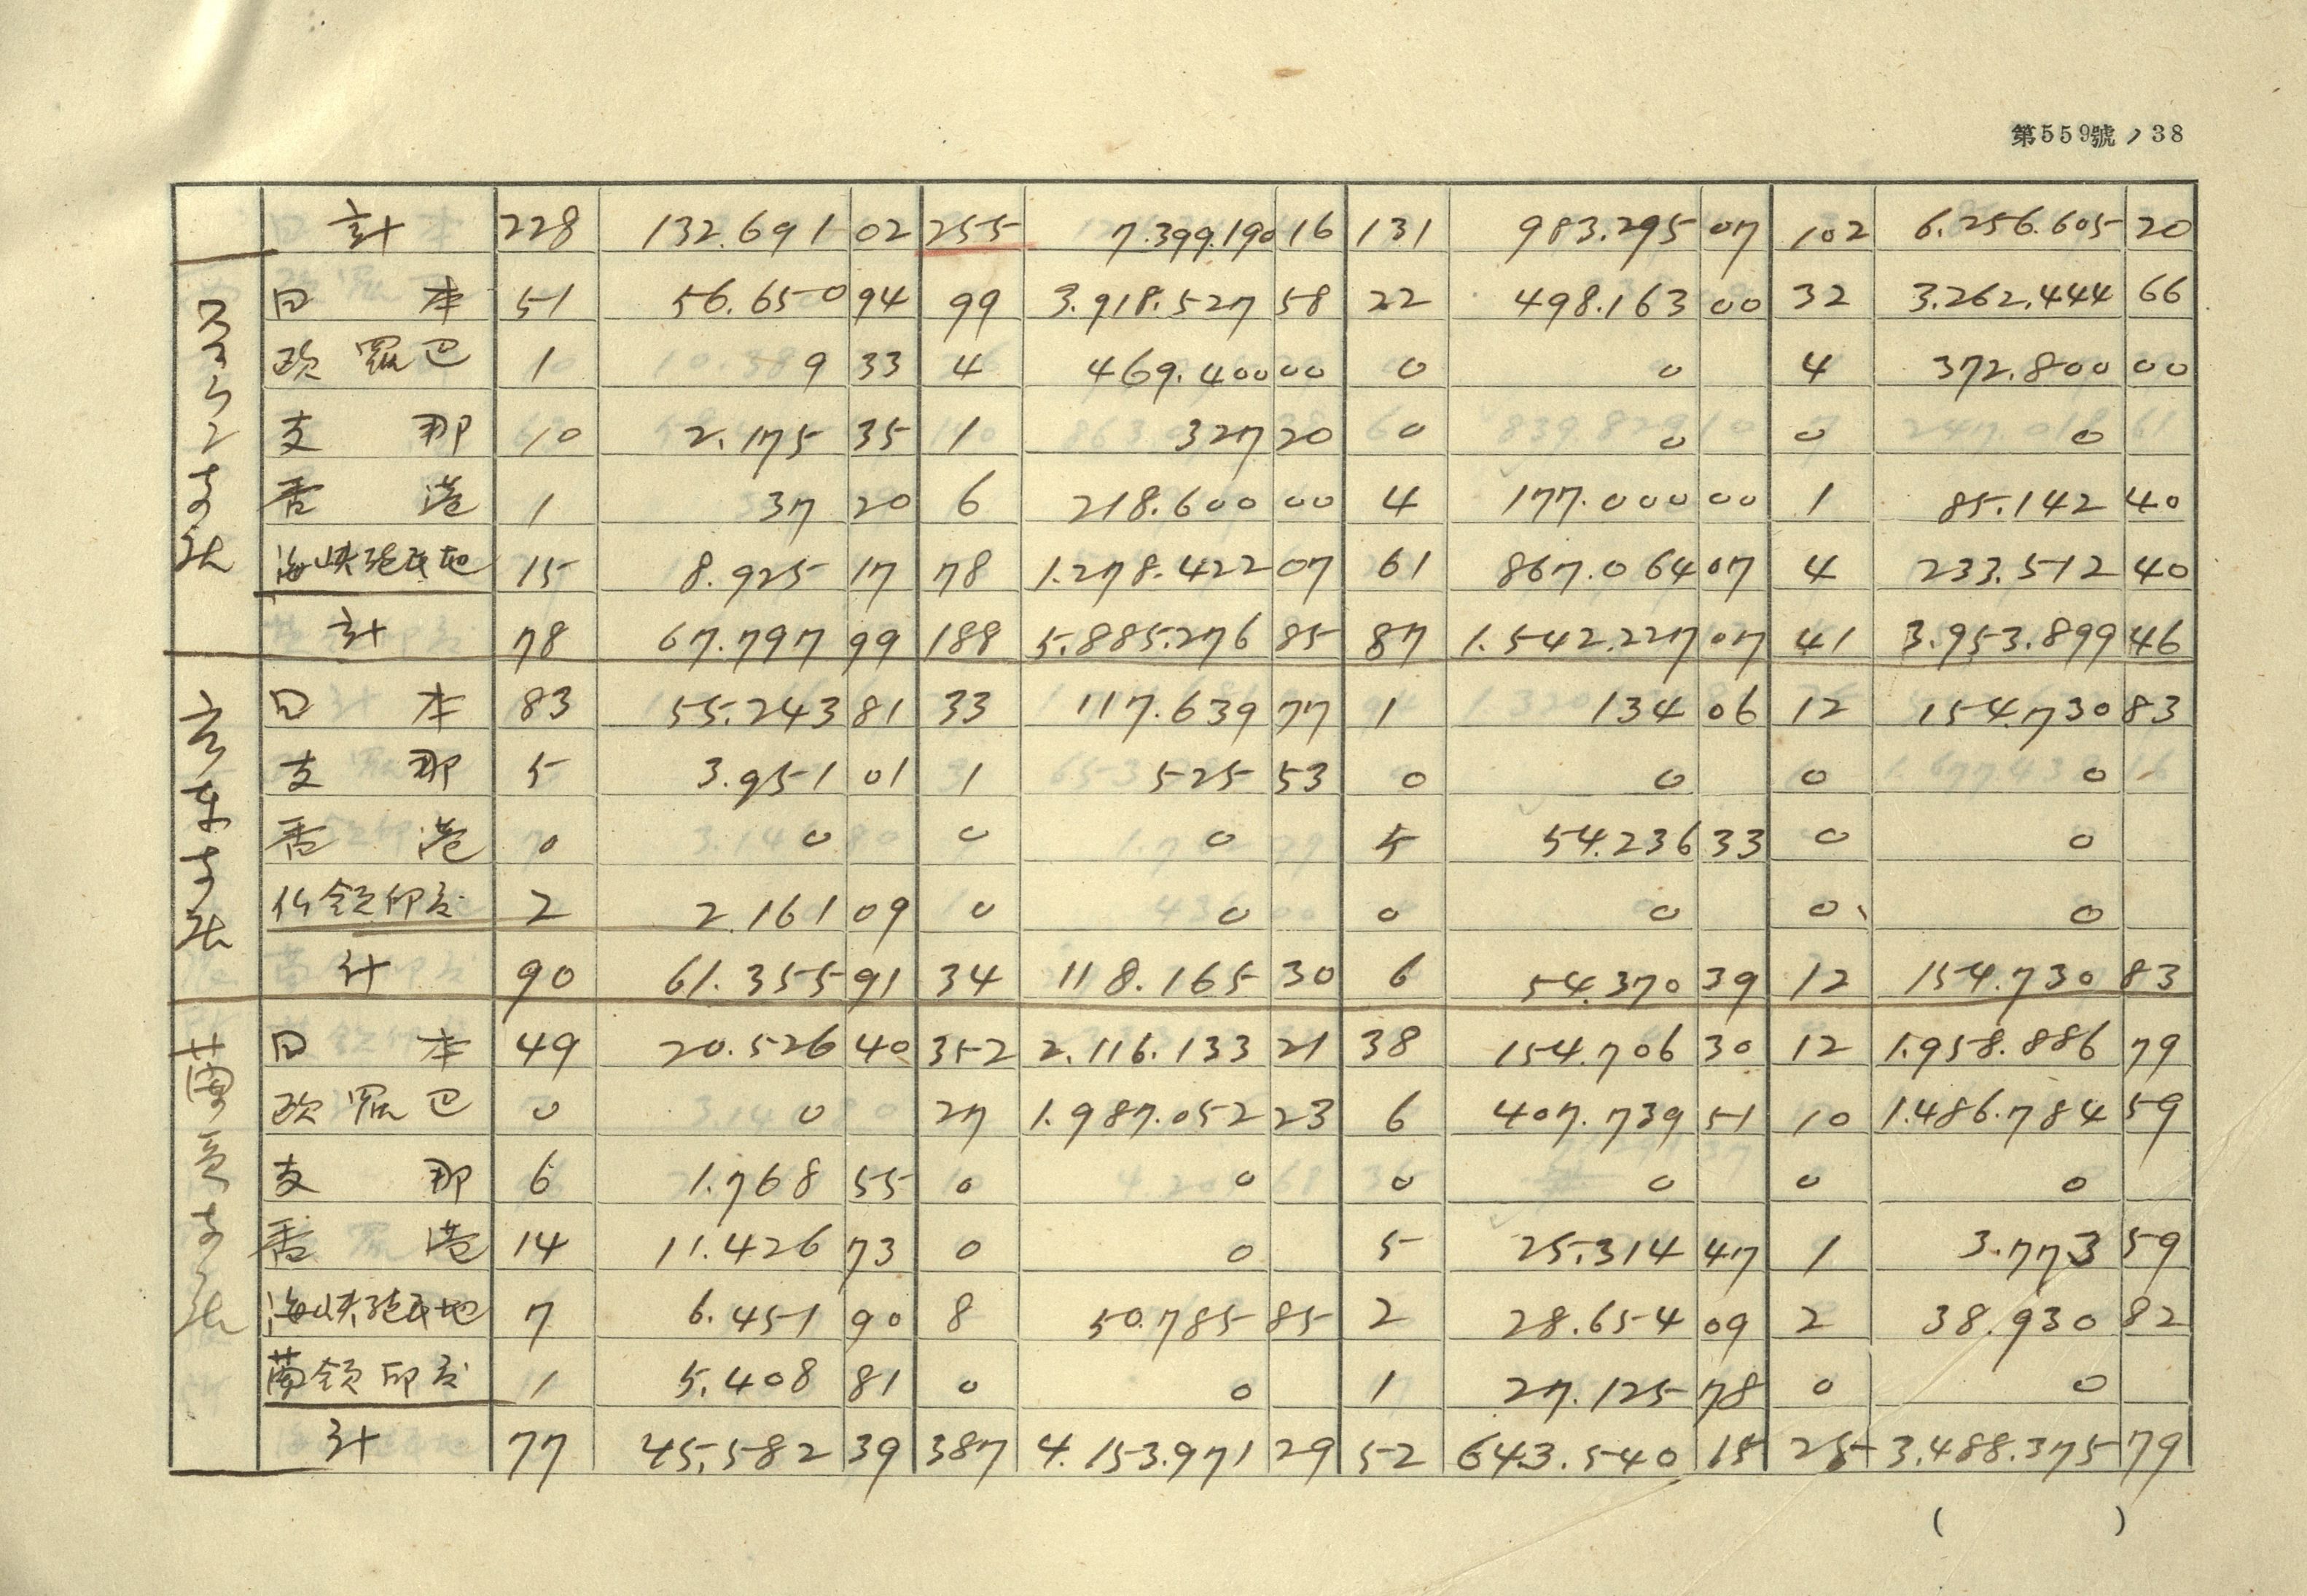 第559號ノ38
計 228 132.691 02 255 7.399.190 16 131 983.295 07 102 6.256.605 20
日本 51 56.650 94 99 3.918.527 58 22 498.163 00 32 3.262.444 66
欧羅巴 1 9 33 4 469.400 00 0 0 4 372.800 00
支那 10 2.175 35 1 327 20 0 0 0 0
香港 1 37 20 6 218.600 00 4 177.000 00 1 85.142 40
海峡殖民地 15 8.925 17 78 1.278.422 07 61 867.064 07 4 233.512 40
計 78 67.797 99 188 5.885.276 85 87 1.542.227 07 41 3.953.899 46
日本 83 55.243 81 33 117.639 77 1 134 06 12 154.730 83
支那 5 3.951 01 1 525 53 0 0 0 0
香港 0 0 0 0 5 54.236 33 0 0
仏領印支 2 2.161 09 0 0 0 0 0 0
計 90 61.355 91 34 118.165 30 6 54.370 39 12 154.730 83
日本 49 20.526 40 352 2.116.133 21 38 154.706 30 12 1.958.886 79
欧羅巴 0 0 27 1.987.052 23 6 407.739 51 10 1.486.784 59
支那 6 1.768 55 0 0 0 0 0 0
香港 14 11.426 73 0 0 5 25.314 47 1 3.773 59
海峡殖民地 7 6.451 90 8 50.785 85 2 28.654 09 2 38.930 82
蘭領印度 1 5.408 81 0 0 1 27.125 78 0 0
計 77 45.582 39 387 4.153.971 29 52 643.540 15 25 3.488.375 79
( )